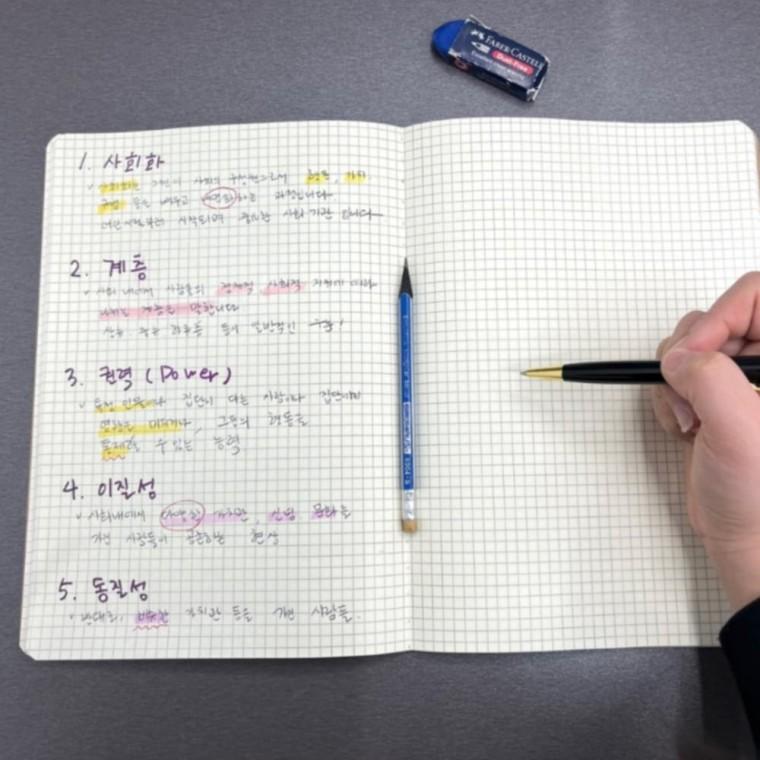 FABER-CASTELL
Dust-Free
1. 사회화
사회화는 개인이 사회의 구성원으로서 행동, 가치
규범 등을 배우고 하는 과정입니다
시작되며 중요한 사회 기관
2. 계층
사회 내에서 사람들의 경제적 사회적 지위에 따라
나뉘는 계층을 말합니다
상류 중류 하류층 등이 일반적인 구분!
3. 권력 (Power)
특정 인물이나 집단이 다른 사람이나 집단에게
영향을 미치거나, 그들의 행동을
통제할 수 있는 능력
4. 이질성
사회내에서 다양한 가치관, 신념 문화를
가진 사람들이 공존하는 현상
5. 동질성
반대로, 비슷한 가치관 등을 가진 사람들.